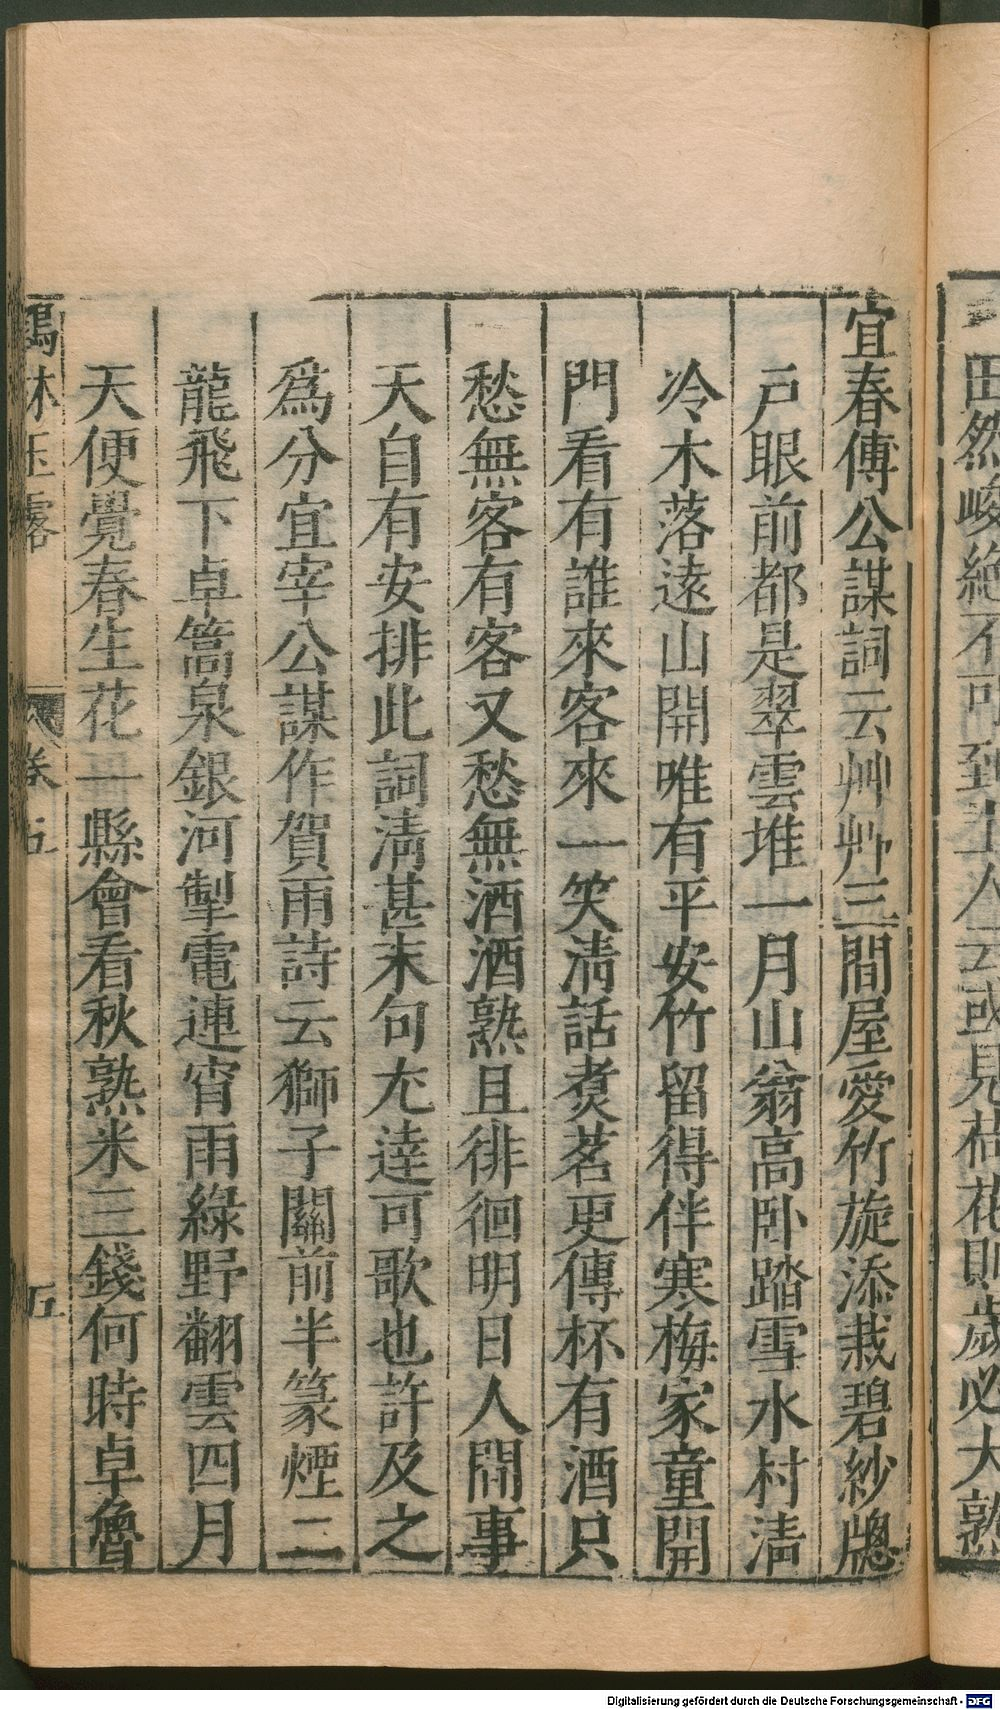 田然峻絶不可到土人云或見桔花則歲必大熟
宜春傅公謀詞云艸艸三間屋愛竹旋添栽碧紗牕
戸眼前都是翠雲堆一月山翁高卧踏雪水村清
冷木落遠山開唯有平安竹留得伴寒梅家童開
門看有誰來客來一笑清話煑茗更傳杯有酒只
愁無客有客又愁無酒酒熟且徘徊明日人間事
天自有安排此詞清甚末句尢逹可歌也許及之
爲分宜宰公謀作賀雨詩云獅子關前半篆煙二
龍飛下卓篙泉銀河掣電連宵雨綠野翻雲四月
天便覺春生花一縣會看秋熟米三錢何時卓魯
鶴林玉露 卷五 五
Digitalisierung gefördert durch die Deutsche Forschungsgemeinschaft - DFG